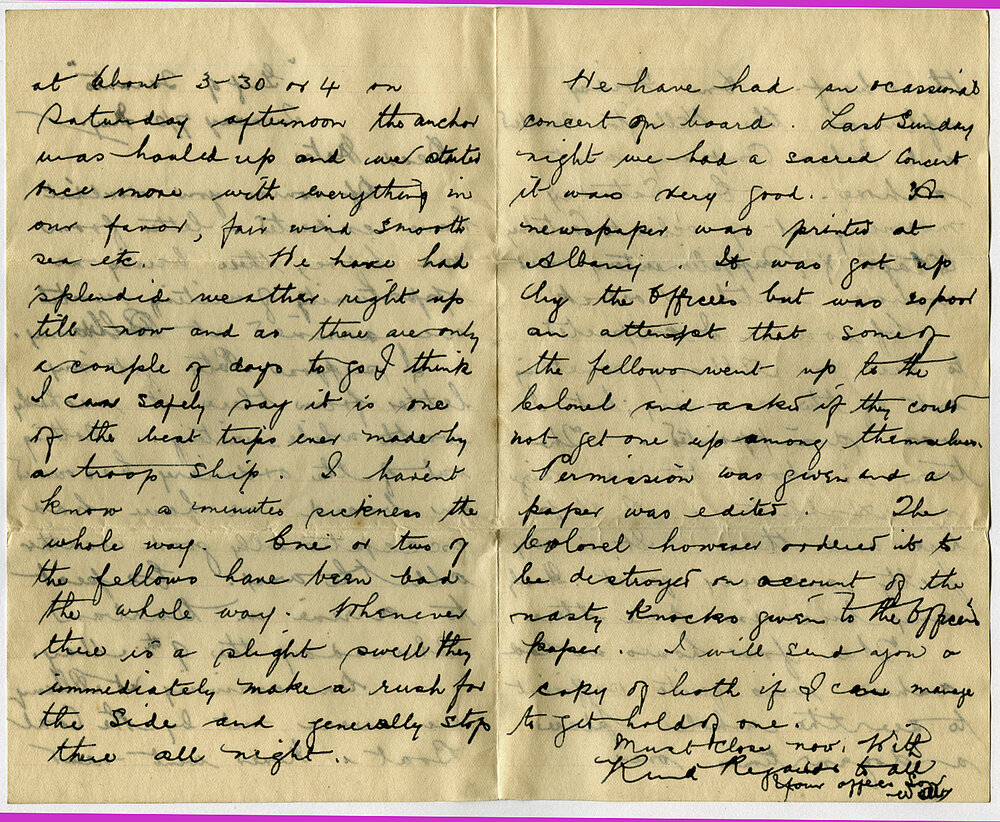 at about 3-30 or 4 on
Saturday afternoon the anchor
was hauled up and we started
once more with everything in
our favor, fair wind smooth
sea etc. We have had
splendid weather right up
till now and as there are only
a couple of days to go I think
I can safely say it is one
of the best trips ever made by
a troop ship. I havent
know a minutes sickness the
whole way. One or two of
the fellows have been bad
the whole way. Whenever
there is a slight swell they
immediately make a rush for
the side and generally stop
there all night.
We have had an ocassional
concert on board. Last Sunday
night we had a sacred concert
it was very good. A
newspaper was printed at
Albany. It was got up
by the Officers but was so poor
an attempt that some of
the fellows went up to the
Colonel and asked if they could
not get one up among themselves.
Permission was given and a
paper was edited. The
Colonel however ordered it to
be destroyed on account of the
nasty knocks given to the Officers
paper. I will send you a
copy of both if I can manage
to get hold of one.
Must close now. With
Kind Regards to all
Your affec Son